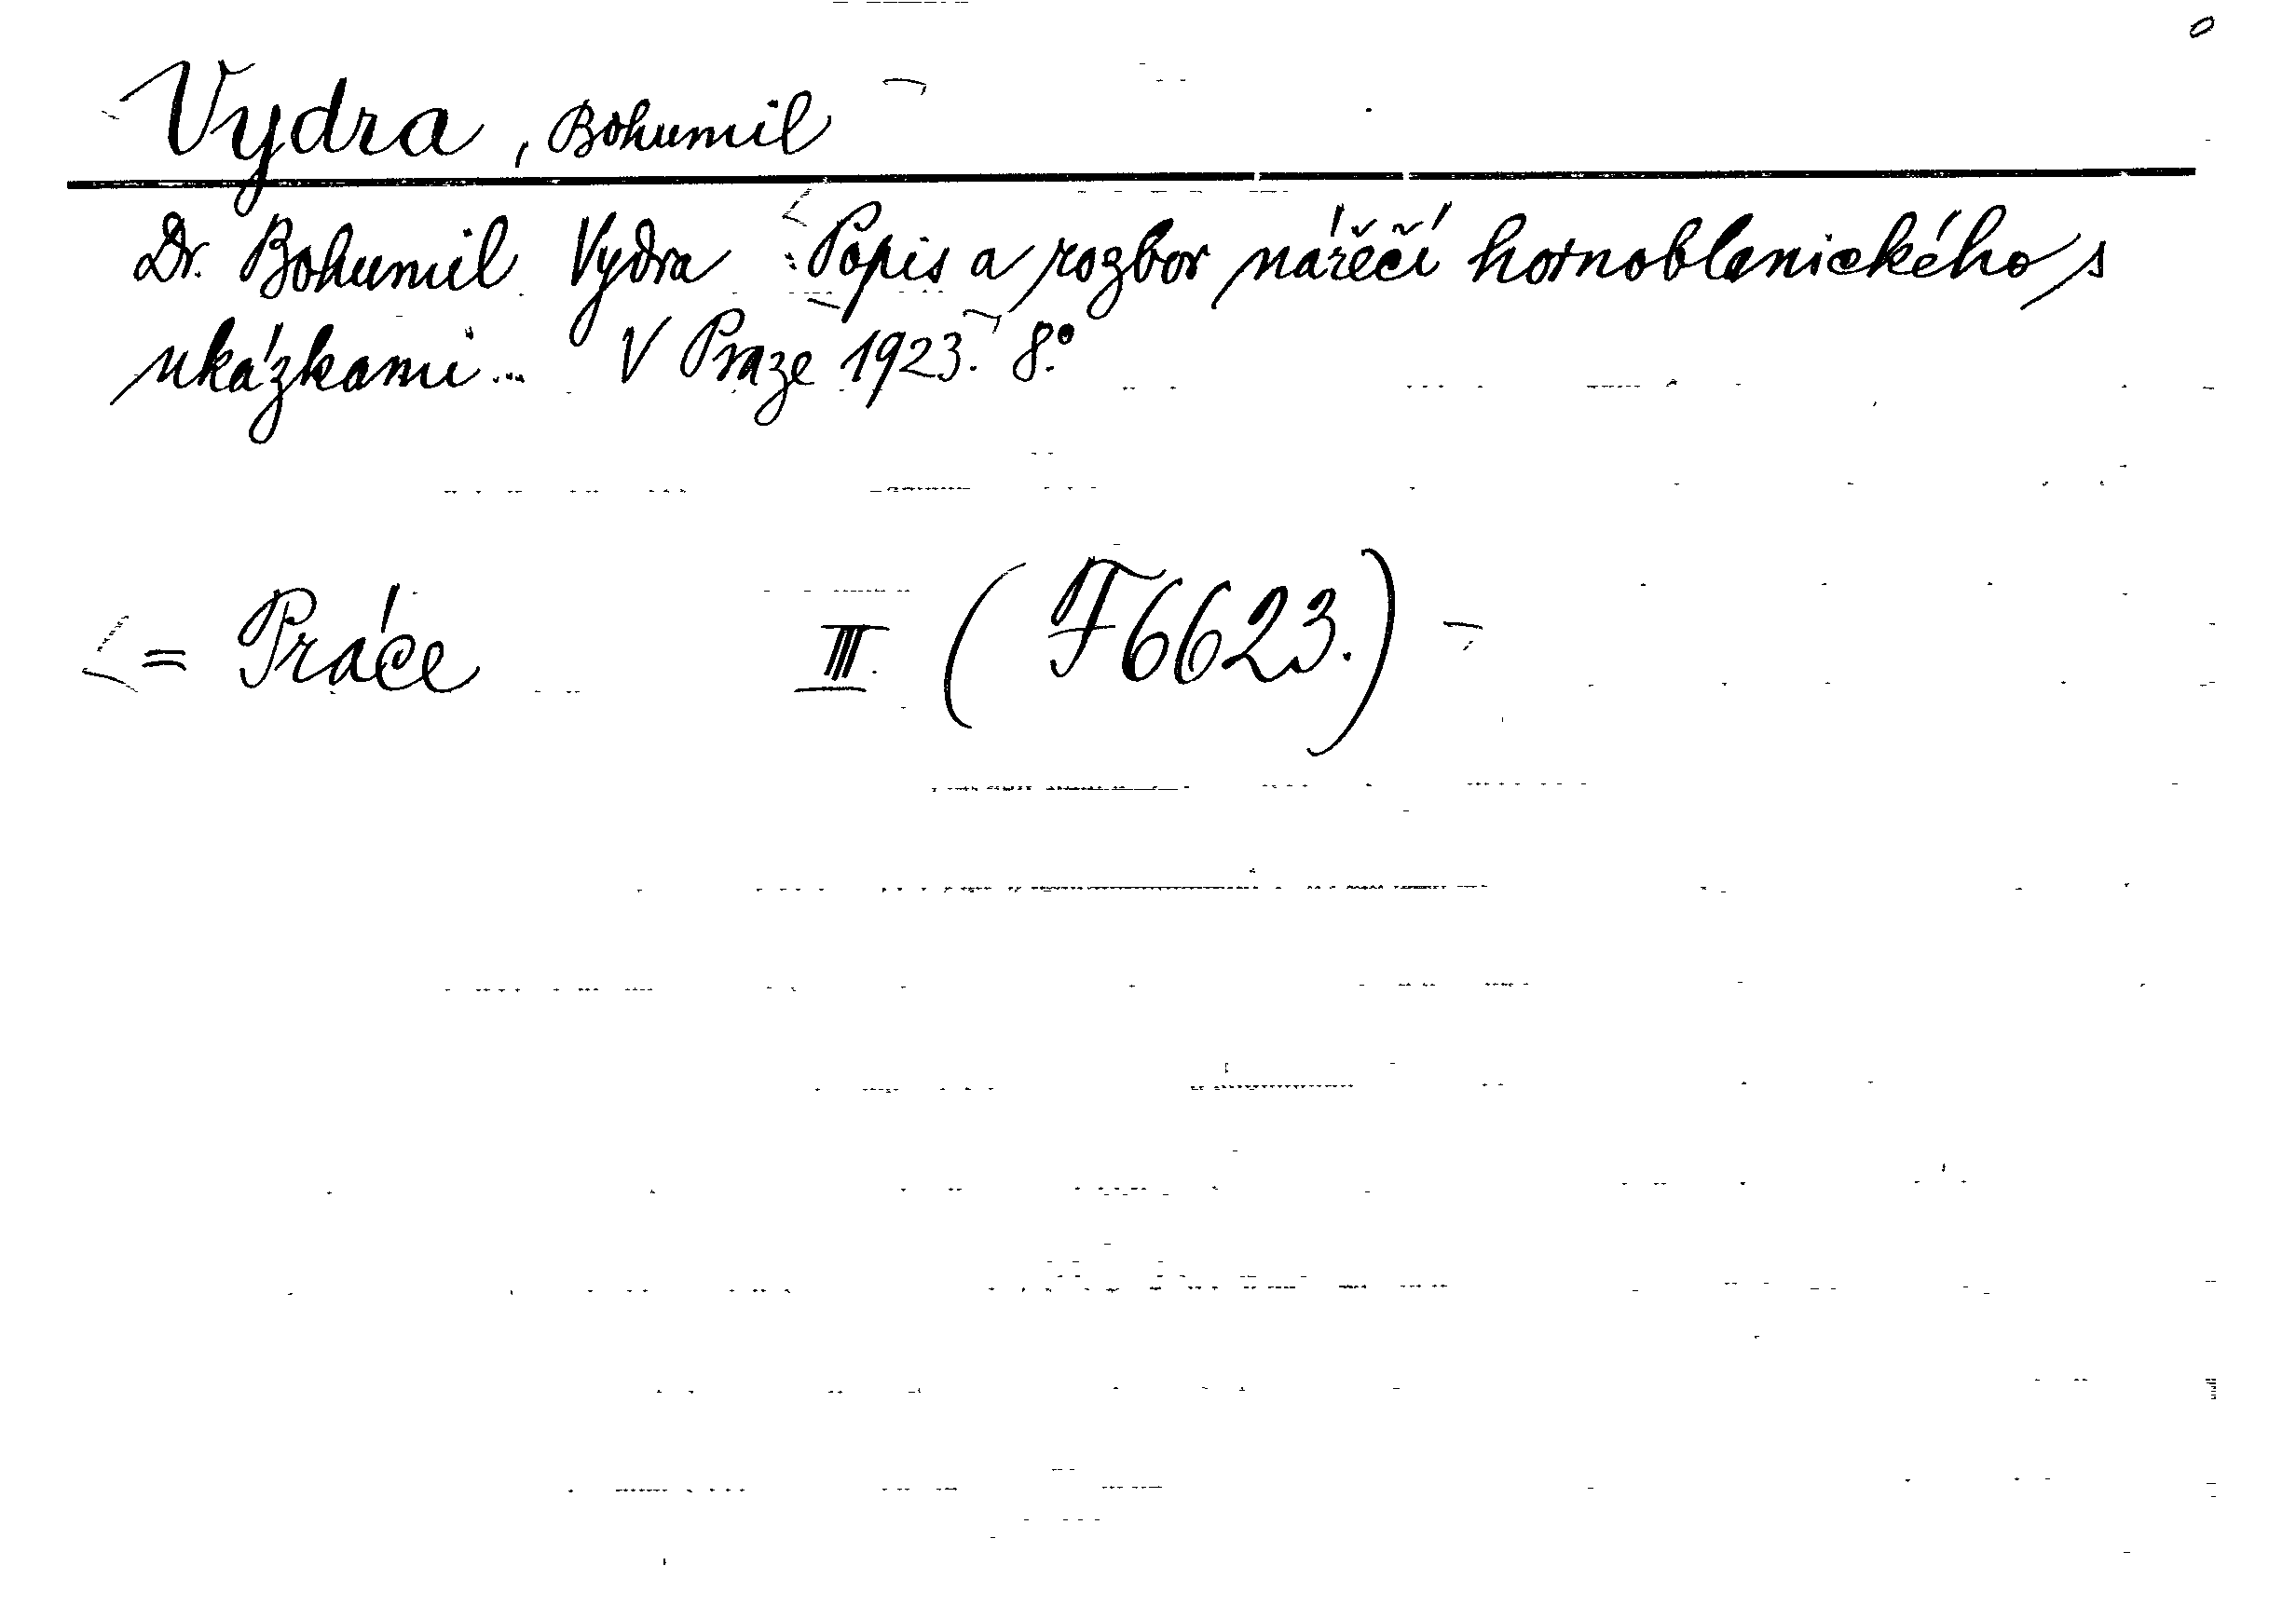 Vydra, Bohumil
Dr. Bohumil Vydra : Popis a rozbor nářečí hornoblanického s
ukázkami... V Praze 1923. 8.°
= Práce III. (F6623.)